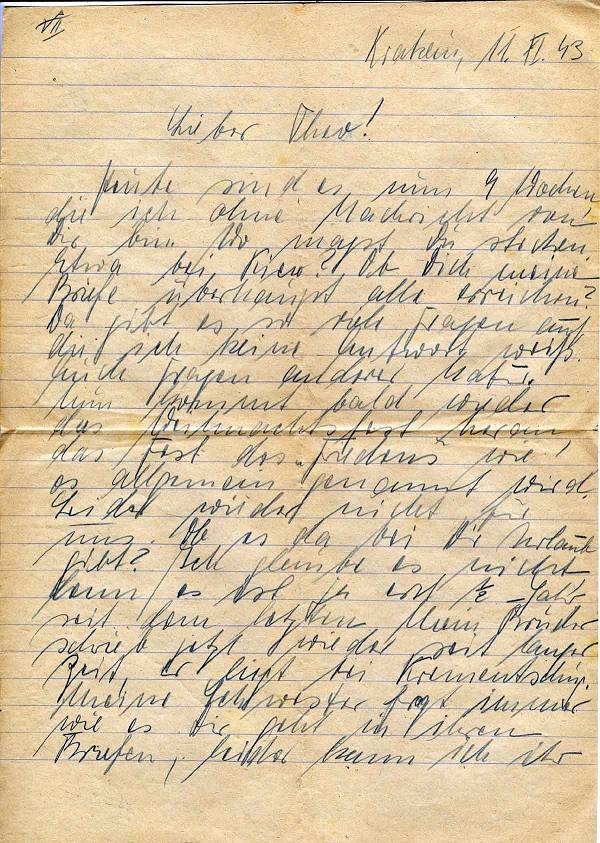 VII
11. XI. 43
Lieber Theo!
Heute sind es nun 9 Wochen
die ich ohne Nachricht von
Dir bin. Wo magst Du stecken
Etwa bei Kiew? Ob Dich meine
Briefe überhaupt alle erreichen?
Da gibt es so viele Fragen auf
die ich keine Antwort weiß.
Auch Fragen anderer Natur.
Nun kommt bald wieder
das Weihnachtsfest heran,
das Fest des „Friedens" wie
es allgemein genannt wird.
Leider wieder nicht für
uns. Ob es da bei Dir Urlaub
gibt? Ich glaube es nicht
denn es ist ja erst ½ - Jahr
seit dem letzten. Mein Bruder
schrieb jetzt wieder seit langer
Zeit, er liegt bei Krementschug.
Meine Schwester fragt immer
wie es Dir geht in ihren
Briefen, leider kann ich ihr